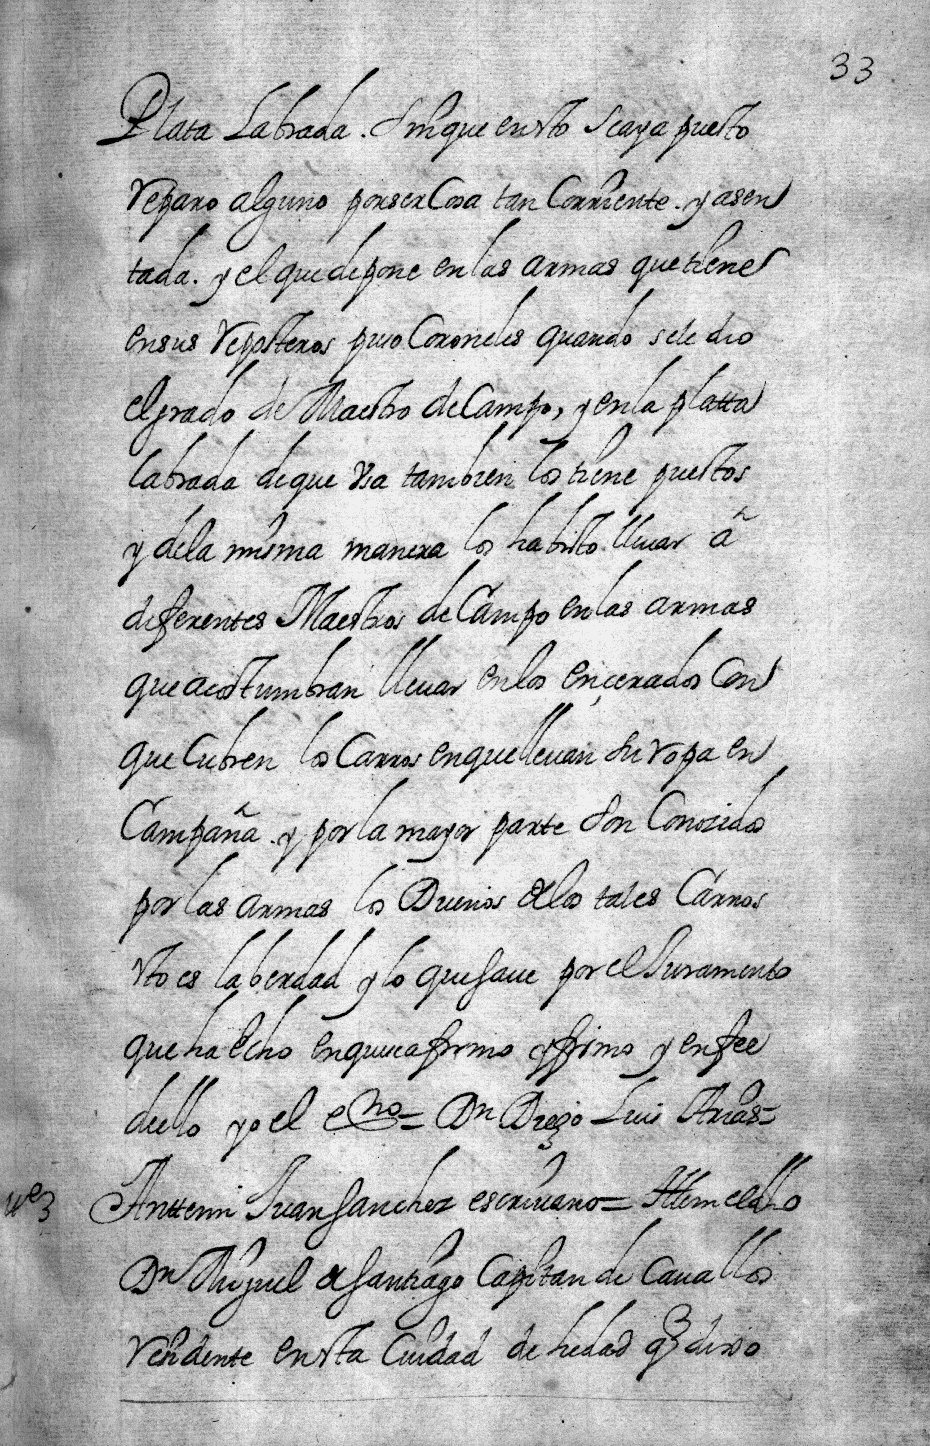 33
Plata Labrada. Sin que en esto se aya puesto
reparo alguno por ser Cosa tan Corriente. y asen
tada. y el que depone en las armas que tiene
en sus reposteros puso Coroneles quando se le dio
el grado de Maestro de Campo, y en la platta
labrada de que usa tambien los tiene puestos
y de la misma manera los ha bisto lleuar â
diferentes Maestros de Campo en las armas
que acostumbran lleuar en los ençerados Con
que Cubren los Carros en que lleuan su ropa en
Campaña. y por la mayor parte son Conozidos
por las armas los Duenos de los tales Carros
esto es la berdad y lo que saue por el Juramento
que ha echo en que se afirmo y firmo y en fee
dello yo el esno = Dn Diego Luis Arias =
Anttemi Juan Sanchez escriuano = Ittem el dho
Dn Miguel de Santiago Capitan de Cauallos
residente en esta Ciudad de hedad q dixo